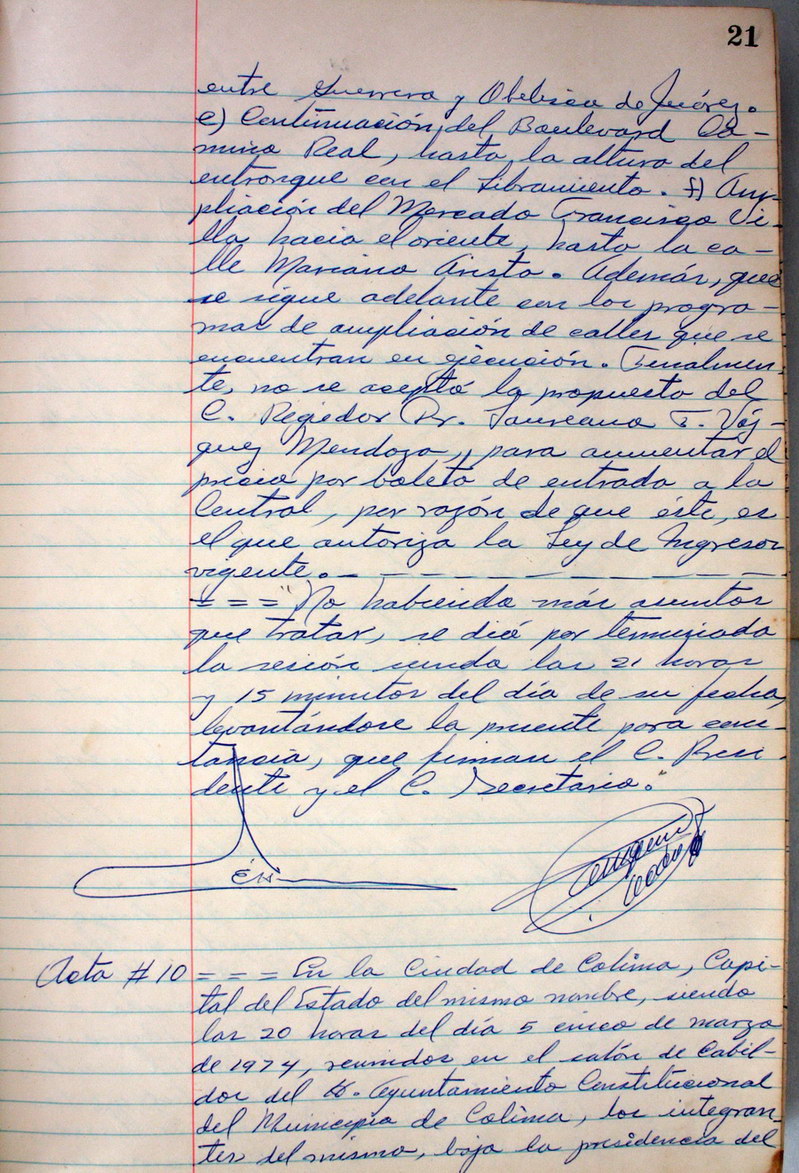 21
entre Guerrero y Obelisco de Juárez.
e) Continuación del Boulevard Ca-
mino Real, hasta la altura del
entronque con el Libramiento. f) Am-
pliación del Mercado Francisco Vi-
lla hacia el oriente, hasta la ca-
lle Mariano Arista. Además, que
se sigue adelante con los progra-
mas de ampliación de calles que se
encuentran en ejecución. Finalmen-
te, no se aceptó la propuesta del
C. Regidor Dr. Laureano T. Váz-
quez Mendoza, para aumentar el
precio por boleto de entrada a la
Central, por razón de que éste, es
el que autoriza la Ley de Ingresos
vigente. — — — — — — — —
= = = No habiendo más asuntos
que tratar, se dió por terminada
la sesión siendo las 21 horas
y 15 minutos del día de su fecha,
levantándose la presente para cons-
tancia, que firman el C. Presi-
dente y el C. Secretario."
Acta # 10 = = = En la Ciudad de Colima, Capi-
tal del Estado del mismo nombre, siendo
las 20 horas del día 5 cinco de marzo
de 1974, reunidos en el salón de Cabil-
dos del H. Ayuntamiento Constitucional
del Municipio de Colima, los integran-
tes del mismo, bajo la presidencia del